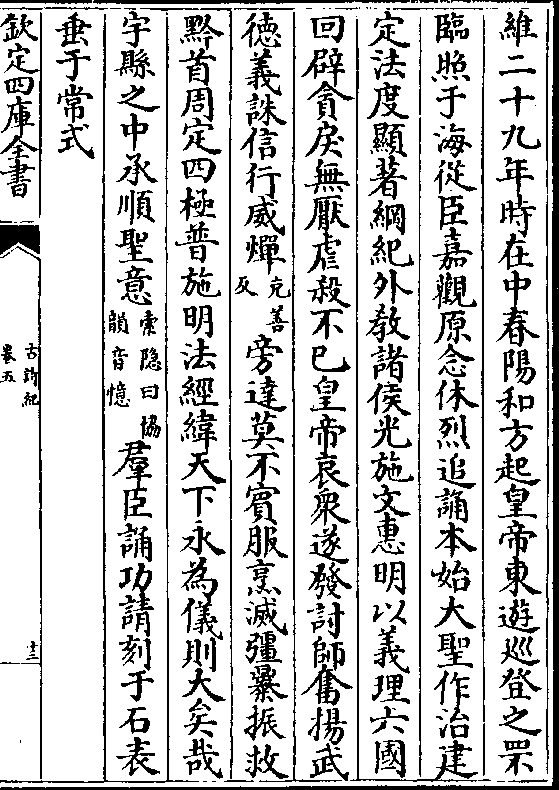 維二十九年時在中春陽和方起皇帝東遊巡登之罘
臨照于海從臣嘉觀原念休烈追誦本始大聖作治建
定法度顯著綱紀外教諸侯光施文惠明以義理六國
回辟貪戾無厭虐殺不已皇帝哀衆遂發討師奮揚武
德義誅信行威燀充善反旁達莫不賓服烹滅彊暴振救
黔首周定四極普施明法經緯天下永為儀則大矣哉
宇縣之中承順聖意索隐曰協韻音憶羣臣誦功請刻于石表
垂于常式
欽定四庫全書
古詩紀
卷五
十三